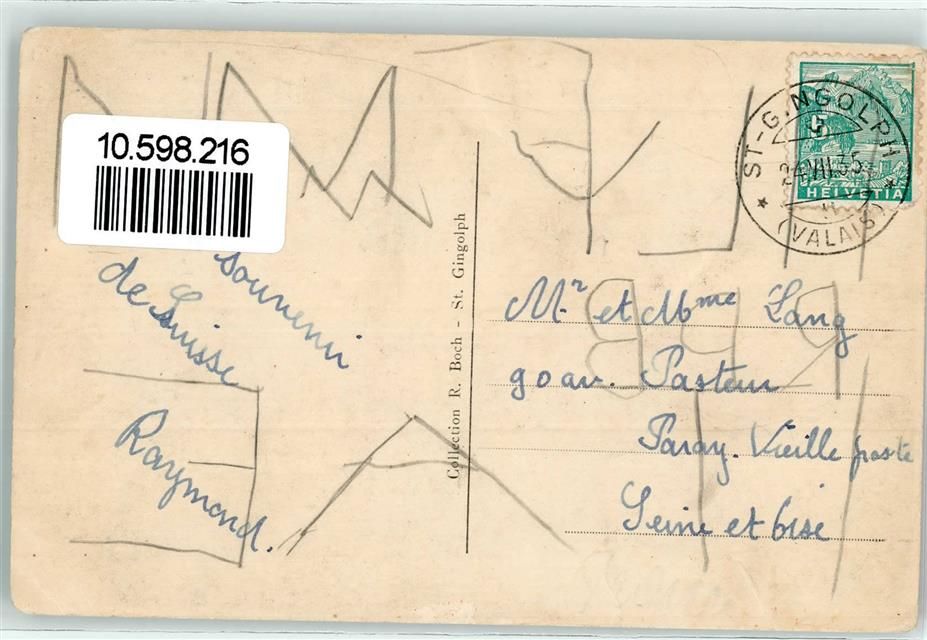 10.598.216
souvenir
de Suisse
Raymond.
Collection R. Boch - St. Gingolph
ST-GINGOLPH
24.VII.35
(VALAIS)
HELVETIA
5
Mr et Mme Lang
90 av. Pasteur
Paray. Vieille poste
Seine et Oise